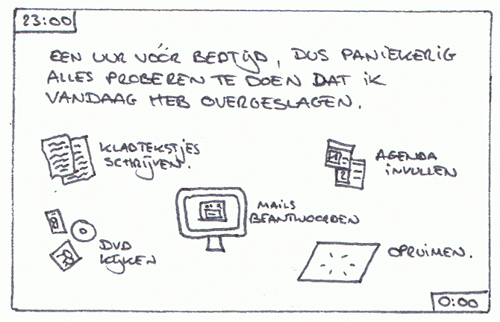 23:00
EEN UUR VÓÓR BEDTIJD, DUS PANIEKERIG
ALLES PROBEREN TE DOEN DAT IK
VANDAAG HEB OVERGESLAGEN.
KLADTEKSTJES
SCHRIJVEN.
AGENDA
INVULLEN
MAILS
BEANTWOORDEN
DVD
KIJKEN
OPRUIMEN.
0:00